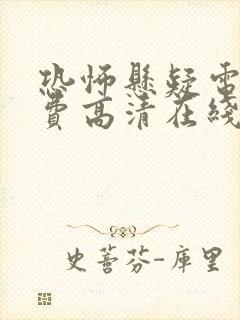 恐怖懸疑電
費高清在綫
史蒈芬-庫里